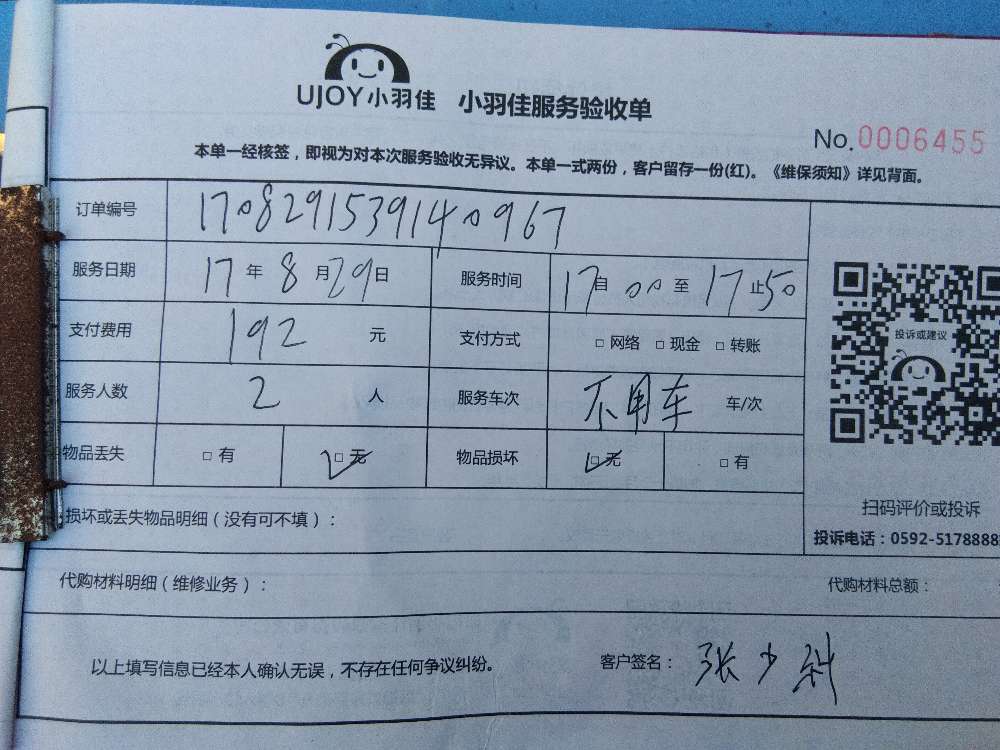 UJOY小羽佳 小羽佳服务验收单
No.0006455
本单一经核签，即视为对本次服务验收无异议。本单一式两份，客户留存一份(红)。《维保须知》详见背面。
订单编号 170829153914 0967
服务日期 17年 8月29日 服务时间 17自00至17止50
支付费用 192 元 支付方式 □网络 □现金 □转账
投诉或建议
服务人数 2 人 服务车次 不用车 车/次
物品丢失 □有 □无 物品损坏 □无 □有
扫码评价或投诉
损坏或丢失物品明细（没有可不填）：
投诉电话：0592-5178888
代购材料明细（维修业务）： 代购材料总额：
以上填写信息已经本人确认无误，不存在任何争议纠纷。 客户签名： 张少